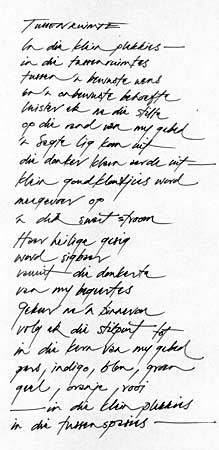 TUSSENRUIMTE
In die klein plekkies —
in die tussenruimtes
tussen 'n bewuste wens
en 'n onbewuste behoefte
luister ek na die stilte
op die rand van my gebed
'n sagte lig kom uit
die donker klam aarde uit —
klein goudklontjies word
meegevoer op
'n dik swart stroom
Haar heilige gesig
word sigbaar
vanuit die donkerte
van my begeertes
gebeur na 'n
volg ek die stilpunt tot
in die kern van my gebed
pers, indigo, blou, groen
geel, oranje, rooi
— in die klein plekkies
in die tussenspasies —